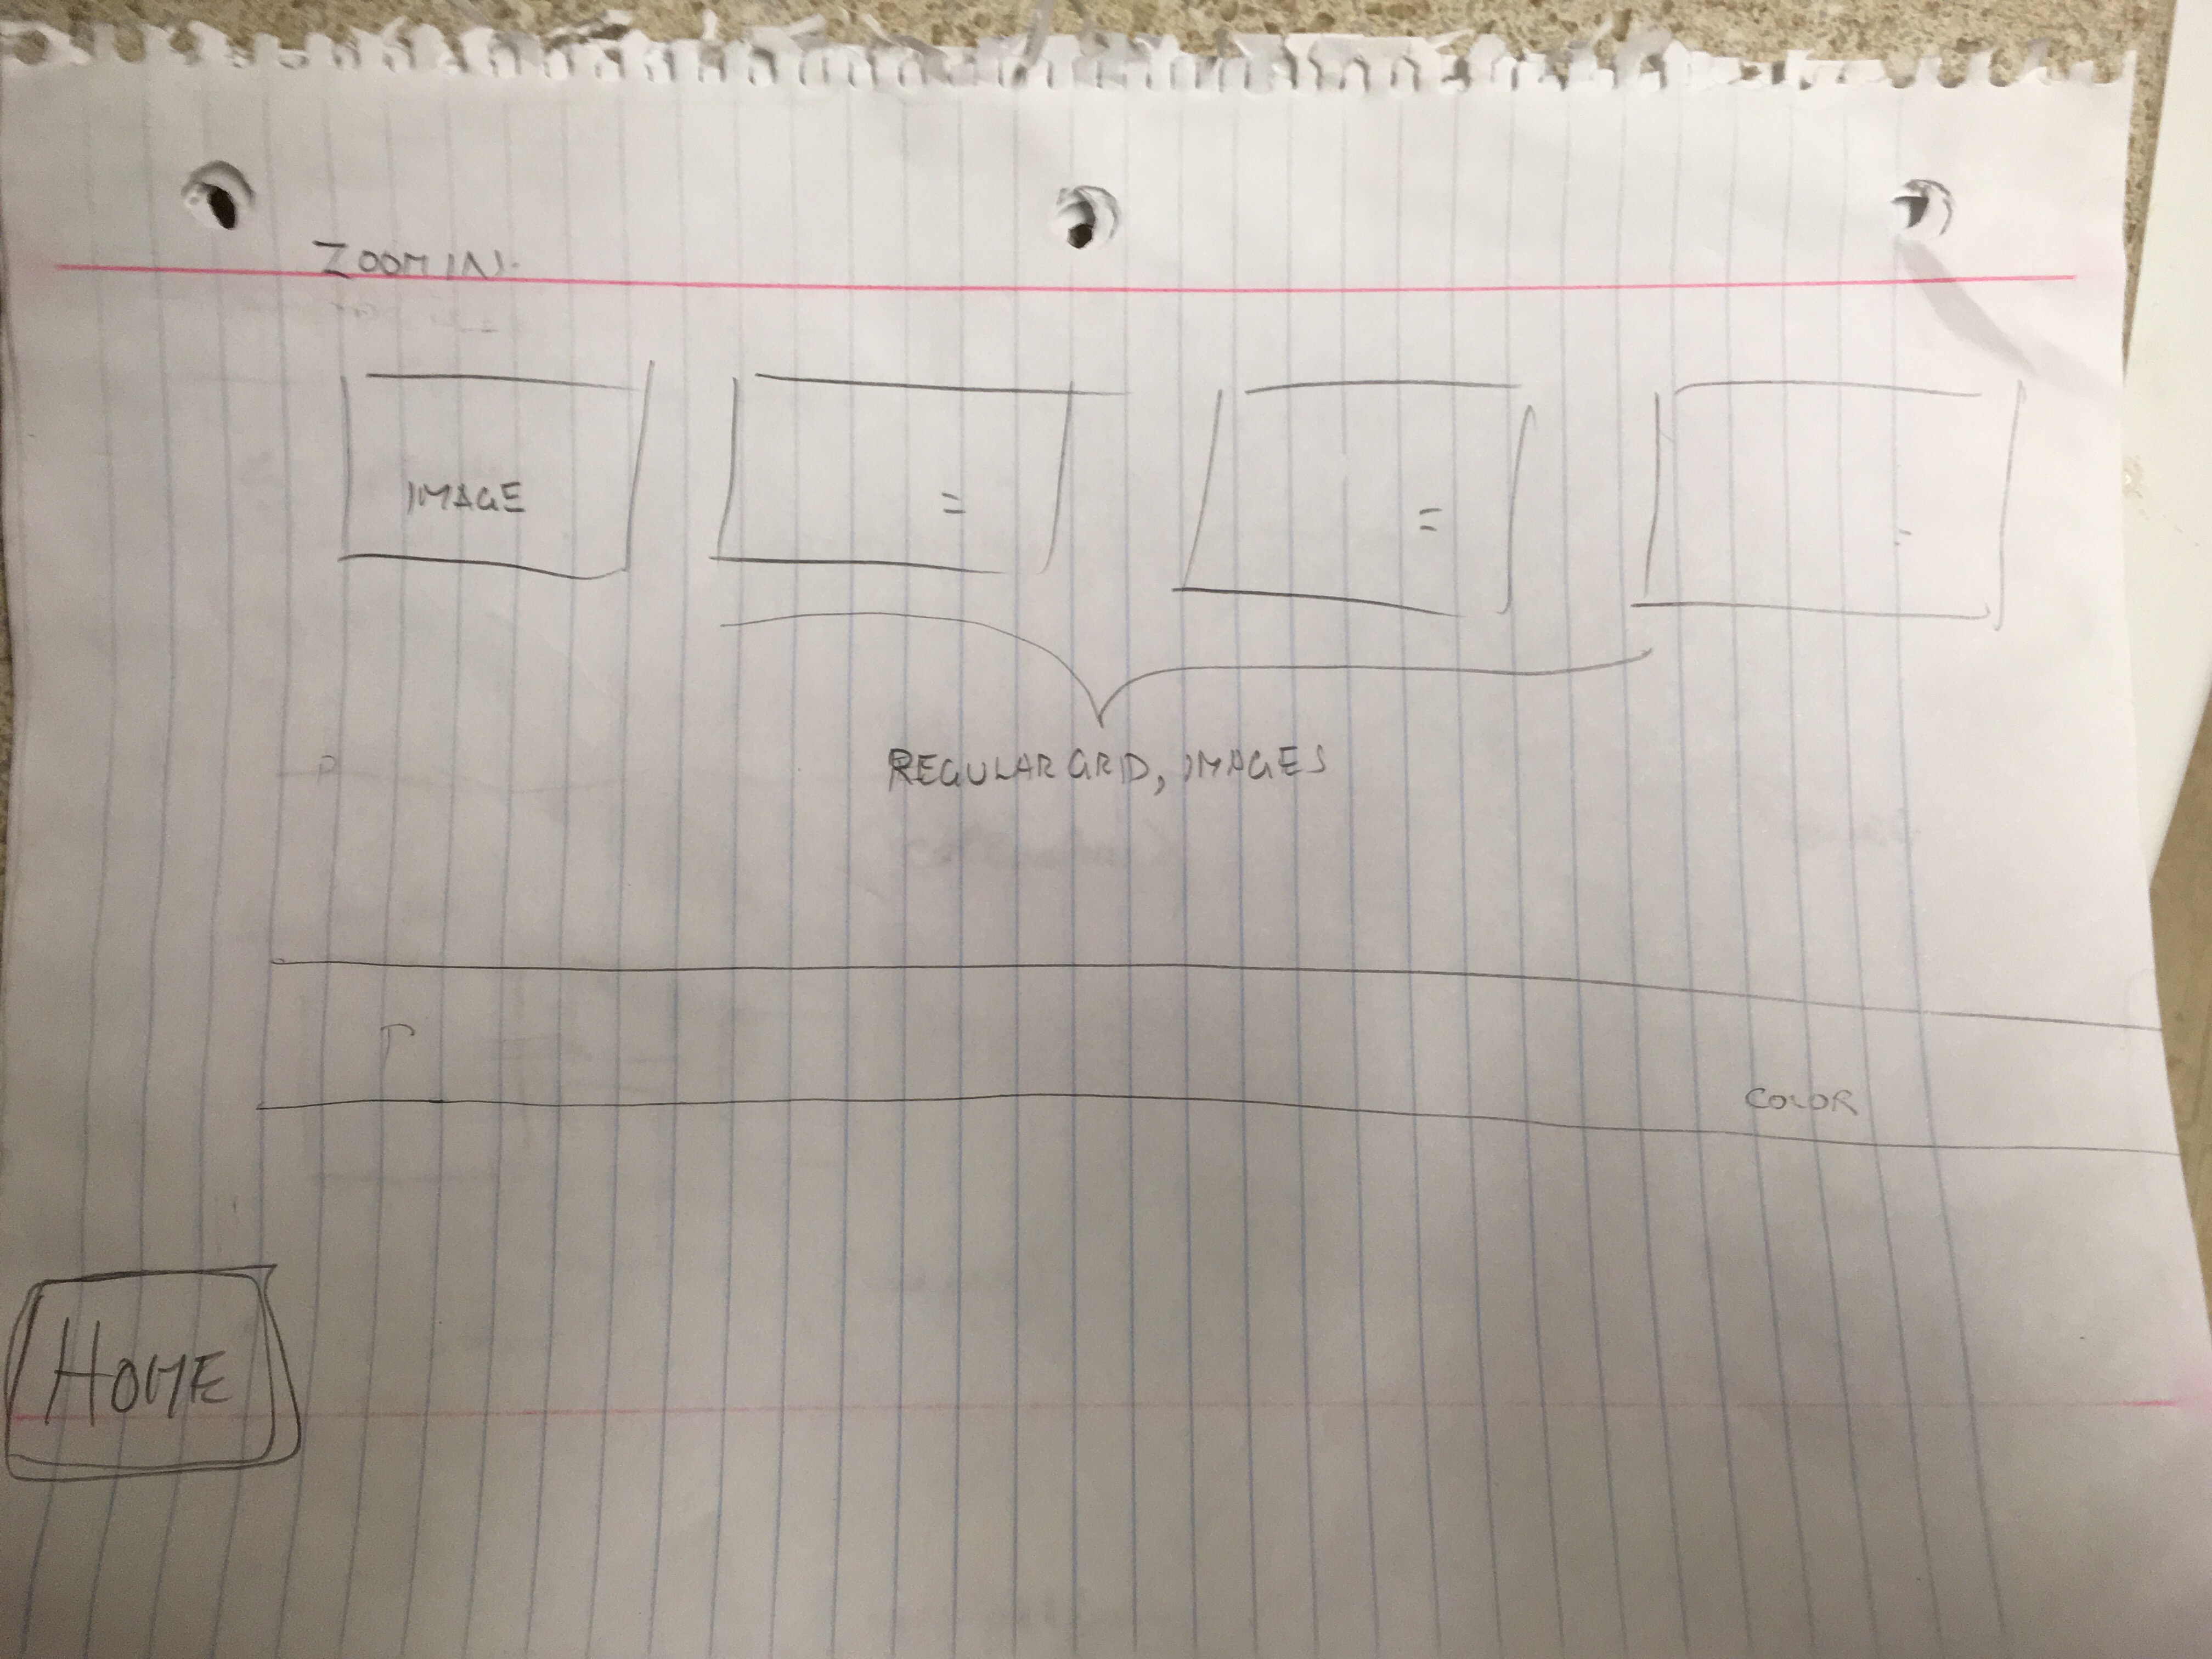 ZOOM IN.
IMAGE
=
=
=
REGULAR GRID, IMAGES
COLOR
HOME